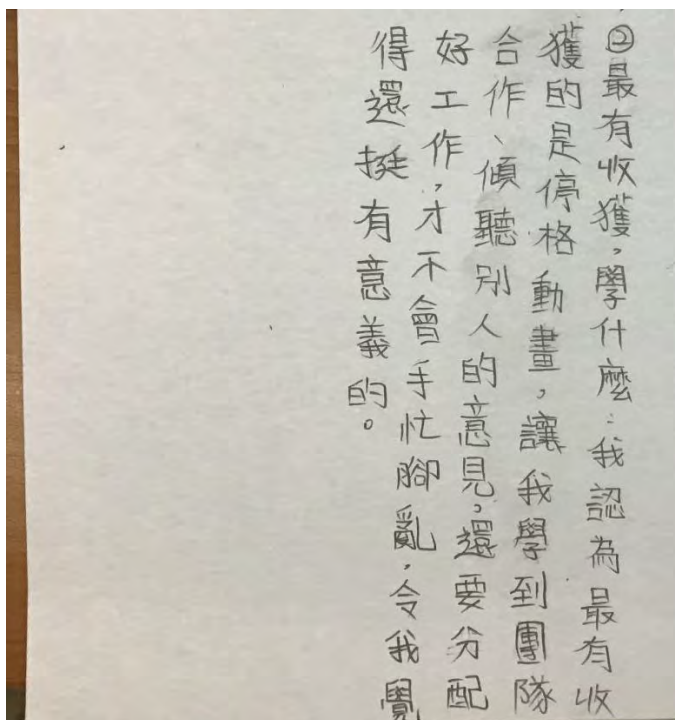 ②最有收獲,學什麼:我認為最有收
獲的是停格動畫,讓我學到團隊
合作、傾聽別人的意見,還要分配
好工作,才不會手忙腳亂,令我覺
得還挺有意義的。